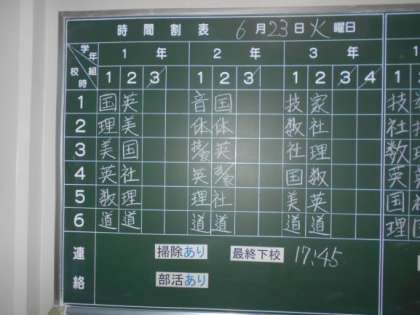 時間割表 6月23日火曜日
学年 1年 2年 3年
校時 組 1 2 3 1 2 3 1 2 3 4
1 国 英 音 国 技 家 技
2 理 美 体 体 数 社 社
3 美 国 英 社 理 数
4 英 社 英 国 数 英
5 数 理 理 社 美 英 国
6 道 道 道 道 道 道 理
連絡 掃除あり 最終下校 17:45
部活あり